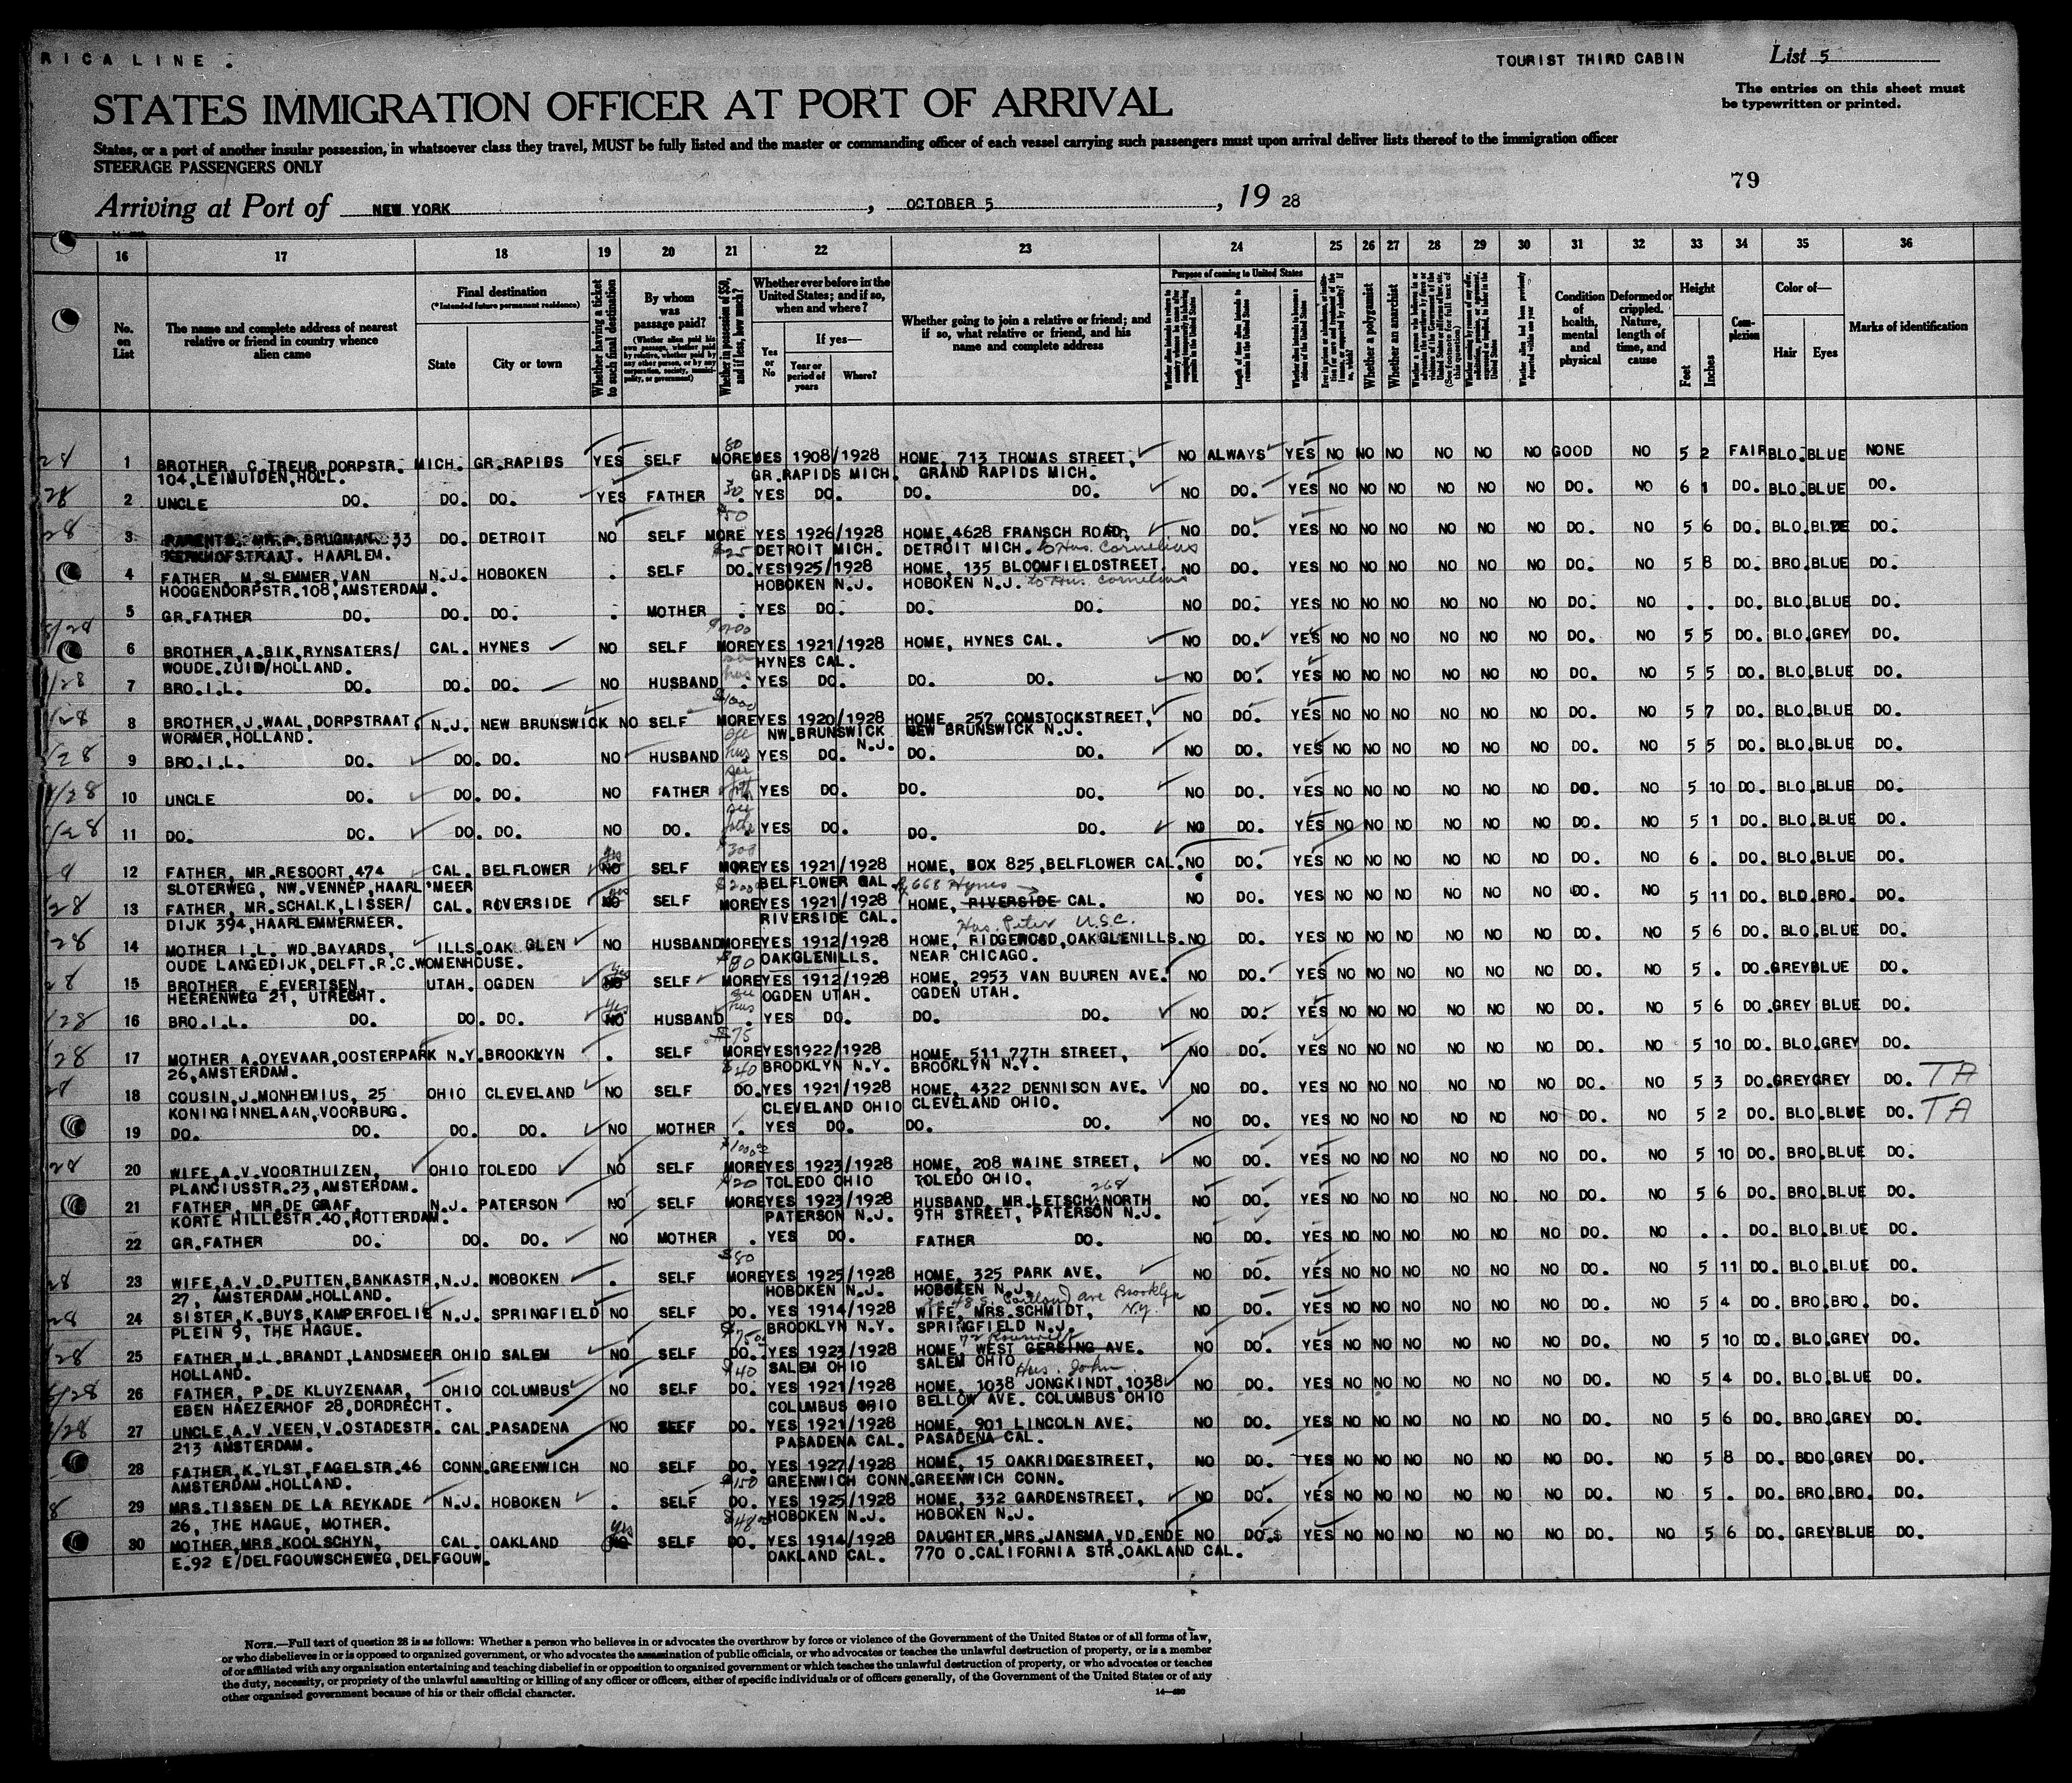 RICA LINE .
TOURIST THIRD CABIN
List 5
The entries on this sheet must
be typewritten or printed.
STATES IMMIGRATION OFFICER AT PORT OF ARRIVAL
States, or a port of another insular possession, in whatsoever class they travel, MUST be fully listed and the master or commanding officer of each vessel carrying such passengers must upon arrival deliver lists thereof to the immigration officer
STEERAGE PASSENGERS ONLY
79
Arriving at Port of NEW YORK , OCTOBER 5 , 19 28
16 17 18 19 20 21 22 23 24 25 26 27 28 29 30 31 32 33 34 35 36
No. on List
The name and complete address of nearest relative or friend in country whence alien came
Final destination
(*Intended future permanent residence)
State
City or town
Whether having a ticket to such final destination
By whom was passage paid?
(Whether alien paid his own passage, whether paid by relative, whether paid by any other person, or by any corporation, society, municipality, or government)
Whether in possession of $50, and if less, how much?
Whether ever before in the United States; and if so, when and where?
Yes or No
If yes—
Year or period of years
Where?
Whether going to join a relative or friend; and if so, what relative or friend, and his name and complete address
Purpose of coming to United States
Length of time alien intends to remain in the United States
Whether alien intends to become a citizen of the United States
Whether a polygamist
Whether an anarchist
Condition of health, mental and physical
Deformed or crippled. Nature, length of time, and cause
Height
Feet
Inches
Complexion
Color of—
Hair
Eyes
Marks of identification
1 BROTHER, C.TREUR,DORPSTR. MICH. GR.RAPIDS YES SELF 80 MORE YES 1908/1928 HOME, 713 THOMAS STREET, NO ALWAYS YES NO NO NO NO NO NO GOOD NO 5 2 FAIR BLO. BLUE NONE
104,LEIMUIDEN,HOLL. GR.RAPIDS MICH. GRAND RAPIDS MICH.
2 UNCLE DO. DO. DO. YES FATHER 30. YES DO. DO. DO. NO DO. YES NO NO NO NO NO NO DO. NO 6 1 DO. BLO. BLUE DO.
3 PARENTS. MR.P.BRUGMAN. 33 DO. DETROIT NO SELF $50 MORE YES 1926/1928 HOME,4628 FRANSCH ROAD, NO DO. YES NO NO NO NO NO NO DO. NO 5 6 DO. BLO. BLUE DO.
KERKHOFSTRAAT. HAARLEM. DETROIT MICH. DETROIT MICH. to Hus. Cornelius
4 FATHER, M.SLEMMER,VAN N.J. HOBOKEN . SELF $25 DO. YES 1925/1928 HOME, 135 BLOOMFIELDSTREET. NO DO. YES NO NO NO NO NO NO DO. NO 5 8 DO. BRO. BLUE DO.
HOOGENDORPSTR.108,AMSTERDAM. HOBOKEN N.J. HOBOKEN N.J. to Hus. Cornelius
5 GR.FATHER DO. DO. DO. . MOTHER . YES DO. DO. DO. NO DO. YES NO NO NO NO NO NO DO. NO . . DO. BLO. BLUE DO.
6 BROTHER,A.BIK,RYNSATERS/ CAL. HYNES NO SELF $200 MORE YES 1921/1928 HOME, HYNES CAL. NO DO. YES NO NO NO NO NO NO DO. NO 5 5 DO. BLO. GREY DO.
WOUDE.ZUID/HOLLAND. HYNES CAL.
7 BRO.I.L. DO. DO. DO. NO HUSBAND . YES DO. DO. DO. NO DO. YES NO NO NO NO NO NO DO. NO 5 5 DO. BLO. BLUE DO.
8 BROTHER,J.WAAL,DORPSTRAAT, N.J. NEW BRUNSWICK NO SELF $1000 MORE YES 1920/1928 HOME, 257 COMSTOCKSTREET, NO DO. YES NO NO NO NO NO NO DO. NO 5 7 DO. BLO. BLUE DO.
WORMER,HOLLAND. NW.BRUNSWICK N.J. NEW BRUNSWICK N.J.
9 BRO.I.L. DO. DO. DO. NO HUSBAND see hus YES DO. DO. DO. NO DO. YES NO NO NO NO NO NO DO. NO 5 5 DO. BLO. BLUE DO.
10 UNCLE DO. DO. DO. NO FATHER see fath YES DO. DO. DO. NO DO. YES NO NO NO NO NO NO DO. NO 5 10 DO. BLO. BLUE DO.
11 DO. DO. DO. DO. NO DO. see fath YES DO. DO. DO. NO DO. YES NO NO NO NO NO NO DO. NO 5 1 DO. BLO. BLUE DO.
12 FATHER, MR.RESOORT,474 CAL. BELFLOWER yes NO SELF $300 MORE YES 1921/1928 HOME, BOX 825,BELFLOWER CAL. NO DO. YES NO NO NO NO NO NO DO. NO 6 . DO. BLO. BLUE DO.
SLOTERWEG, NW.VENNEP,HAARL'MEER BELFLOWER CAL. 668 Hynes
13 FATHER, MR.SCHALK,LISSER/ CAL. RIVERSIDE yes NO SELF $200 MORE YES 1921/1928 HOME, RIVERSIDE CAL. NO DO. YES NO NO NO NO NO NO DO. NO 5 11 DO. BLD. BRO. DO.
DIJK 394,HAARLEMMERMEER. RIVERSIDE CAL. Hus. Peter U.S.C.
14 MOTHER I.L. WD.BAYARDS, ILLS. OAK GLEN NO HUSBAND MORE YES 1912/1928 HOME, RIDGEROAD,OAKGLENILLS. NO DO. YES NO NO NO NO NO NO DO. NO 5 6 DO. BLO. BLUE DO.
OUDE LANGEDIJK,DELFT.R.C.WOMENHOUSE. OAKGLENILLS. NEAR CHICAGO.
15 BROTHER, E.EVERTSEN, UTAH. OGDEN yes NO SELF $80 MORE YES 1912/1928 HOME, 2953 VAN BUUREN AVE. NO DO. YES NO NO NO NO NO NO DO. NO 5 . DO. GREY BLUE DO.
HEERENWEG 21, UTRECHT. OGDEN UTAH. OGDEN UTAH.
16 BRO.I.L. DO. DO. DO. yes NO HUSBAND see hus . YES DO. DO. DO. NO DO. YES NO NO NO NO NO NO DO. NO 5 6 DO. GREY BLUE DO.
17 MOTHER A.OYEVAAR,OOSTERPARK N.Y. BROOKLYN . SELF $75 MORE YES 1922/1928 HOME, 511 77TH STREET, NO DO. YES NO NO NO NO NO NO DO. NO 5 10 DO. BLO. GREY DO.
26,AMSTERDAM. BROOKLYN N.Y. BROOKLYN N.Y.
18 COUSIN,J.MONHEMIUS, 25 OHIO CLEVELAND NO SELF $40 DO. YES 1921/1928 HOME, 4322 DENNISON AVE. NO DO. YES NO NO NO NO NO NO DO. NO 5 3 DO. GREY GREY DO. TA
KONINGINNELAAN,VOORBURG. CLEVELAND OHIO CLEVELAND OHIO.
19 DO. DO. DO. DO. NO MOTHER . YES DO. DO. DO. NO DO. YES NO NO NO NO NO NO DO. NO 5 2 DO. BLO. BLUE DO. TA
20 WIFE,A.V.VOORTHUIZEN, OHIO TOLEDO NO SELF $1000.00 MORE YES 1923/1928 HOME, 208 WAINE STREET, NO DO. YES NO NO NO NO NO NO DO. NO 5 10 DO. BRO. BLUE DO.
PLANCIUSSTR.23,AMSTERDAM. TOLEDO OHIO TOLEDO OHIO.
21 FATHER, MR.DE GRAAF, N.J. PATERSON NO SELF $20 MORE YES 1923/1928 HUSBAND, MR.LETSCH, 268 NORTH NO DO. YES NO NO NO NO NO NO DO. NO 5 6 DO. BRO. BLUE DO.
KORTE HILLESTR.40,ROTTERDAM. PATERSON N.J. 9TH STREET, PATERSON N.J.
22 GR.FATHER DO. DO. DO. NO MOTHER . YES DO. FATHER DO. NO DO. YES NO NO NO NO NO NO DO. NO . . DO. BLO. BLUE DO.
23 WIFE,A.V.D.PUTTEN,BANKASTR, N.J. HOBOKEN . SELF $80 MORE YES 1925/1928 HOME, 325 PARK AVE. NO DO. YES NO NO NO NO NO NO DO. NO 5 11 DO. BLO. BLUE DO.
27, AMSTERDAM.HOLLAND. HOBOKEN N.J. HOBOKEN N.J. Portland ave Brooklyn N.Y.
24 SISTER,K.BUYS,KAMPERFOELIE N.J. SPRINGFIELD NO SELF DO. YES 1914/1928 WIFE, MRS.SCHMIDT, NO DO. YES NO NO NO NO NO NO DO. NO 5 4 DO. BRO. BRO. DO.
PLEIN 9, THE HAGUE. BROOKLYN N.Y. SPRINGFIELD N.J. 72 Roosevelt
25 FATHER,M.L.BRANDT,LANDSMEER OHIO SALEM NO SELF $75.00 DO. YES 1923/1928 HOME, WEST GERSING AVE. NO DO. YES NO NO NO NO NO NO DO. NO 5 10 DO. BLO. GREY DO.
HOLLAND. SALEM OHIO SALEM OHIO Hus. John
26 FATHER, P.DE KLUYZENAAR, OHIO COLUMBUS NO SELF $40 DO. YES 1921/1928 HOME, 1038 JONGKINDT,1038 NO DO. YES NO NO NO NO NO NO DO. NO 5 4 DO. BLO. BLUE DO.
EBEN HAEZERHOF 28,DORDRECHT. COLUMBUS OHIO BELLOW AVE. COLUMBUS OHIO
27 UNCLE,A.V.VEEN,V.OSTADESTR. CAL. PASADENA NO SELF DO. YES 1921/1928 HOME, 901 LINCOLN AVE. NO DO. YES NO NO NO NO NO NO DO. NO 5 6 DO. BRO. GREY DO.
213 AMSTERDAM. PASADENA CAL. PASADENA CAL.
28 FATHER,K.YLST,FAGELSTR.46 CONN. GREENWICH NO SELF DO. YES 1927/1928 HOME, 15 OAKRIDGESTREET, NO DO. YES NO NO NO NO NO NO DO. NO 5 8 DO. BDO. GREY DO.
AMSTERDAM.HOLLAND. GREENWICH CONN. GREENWICH CONN.
29 MRS.TISSEN DE LA REYKADE N.J. HOBOKEN . SELF $150 DO. YES 1925/1928 HOME, 332 GARDENSTREET, NO DO. YES NO NO NO NO NO NO DO. NO 5 . DO. BRO. BRO. DO.
26, THE HAGUE, MOTHER. HOBOKEN N.J. HOBOKEN N.J.
30 MOTHER,MRS.KOOLSCHYN, CAL. OAKLAND yes NO SELF $48.00 DO. YES 1914/1928 DAUGHTER,MRS.JANSMA,VD.ENDE NO DO. YES NO NO NO NO NO NO DO. NO 5 6 DO. GREY BLUE DO.
E.92 E/DELFGOUWSCHEWEG,DELFGOUW. OAKLAND CAL. 770 O.CALIFORNIA STR.OAKLAND CAL.
NOTE.—Full text of question 28 is as follows: Whether a person who believes in or advocates the overthrow by force or violence of the Government of the United States or of all forms of law,
or who disbelieves in or is opposed to organized government, or who advocates the assassination of public officials, or who advocates or teaches the unlawful destruction of property, or is a member
of or affiliated with any organization entertaining and teaching disbelief in or opposition to organized government or which teaches the unlawful destruction of property, or who advocates or teaches
the duty, necessity, or propriety of the unlawful assaulting or killing of any officer or officers, either of specific individuals or of officers generally, of the Government of the United States or of any
other organized government because of his or their official character.